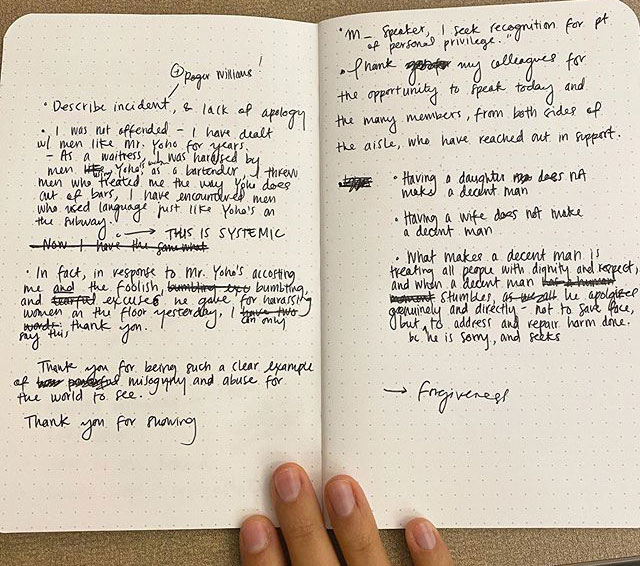 + Roger Williams!
• Describe incident, & lack of apology
• I was not offended – I have dealt
w/ men like Mr. Yoho for years.
– As a waitress, I was harassed by
men like Yoho's, as a bartender, I threw
men who treated me the way Yoho does
out of bars, I have encountered men
who used language just like Yoho's on
the subway. → THIS IS SYSTEMIC
Now I have the same what
• In fact, in response to Mr. Yoho's accosting
me and the foolish, bumbling exc bumbling,
and excuses he gave for harassing
women on the floor yesterday, I have two
words: can only
say this, thank you.
Thank you for being such a clear example
of powerful misogyny and abuse for
the world to see.
Thank you for showing
• M_ Speaker, I seek recognition for pt
of personal privilege."
• Thank my colleagues for
the opportunity to speak today and
the many members, from both sides of
the aisle, who have reached out in support.
• Having a daughter does not
make a decent man
• Having a wife does not make
a decent man
• What makes a decent man is
treating all people with dignity and respect,
and when a decent man has a human
moment stumbles, as we all he apologizes
genuinely and directly – not to save face,
but to address and repair harm done.
bc he is sorry, and seeks
→ forgiveness